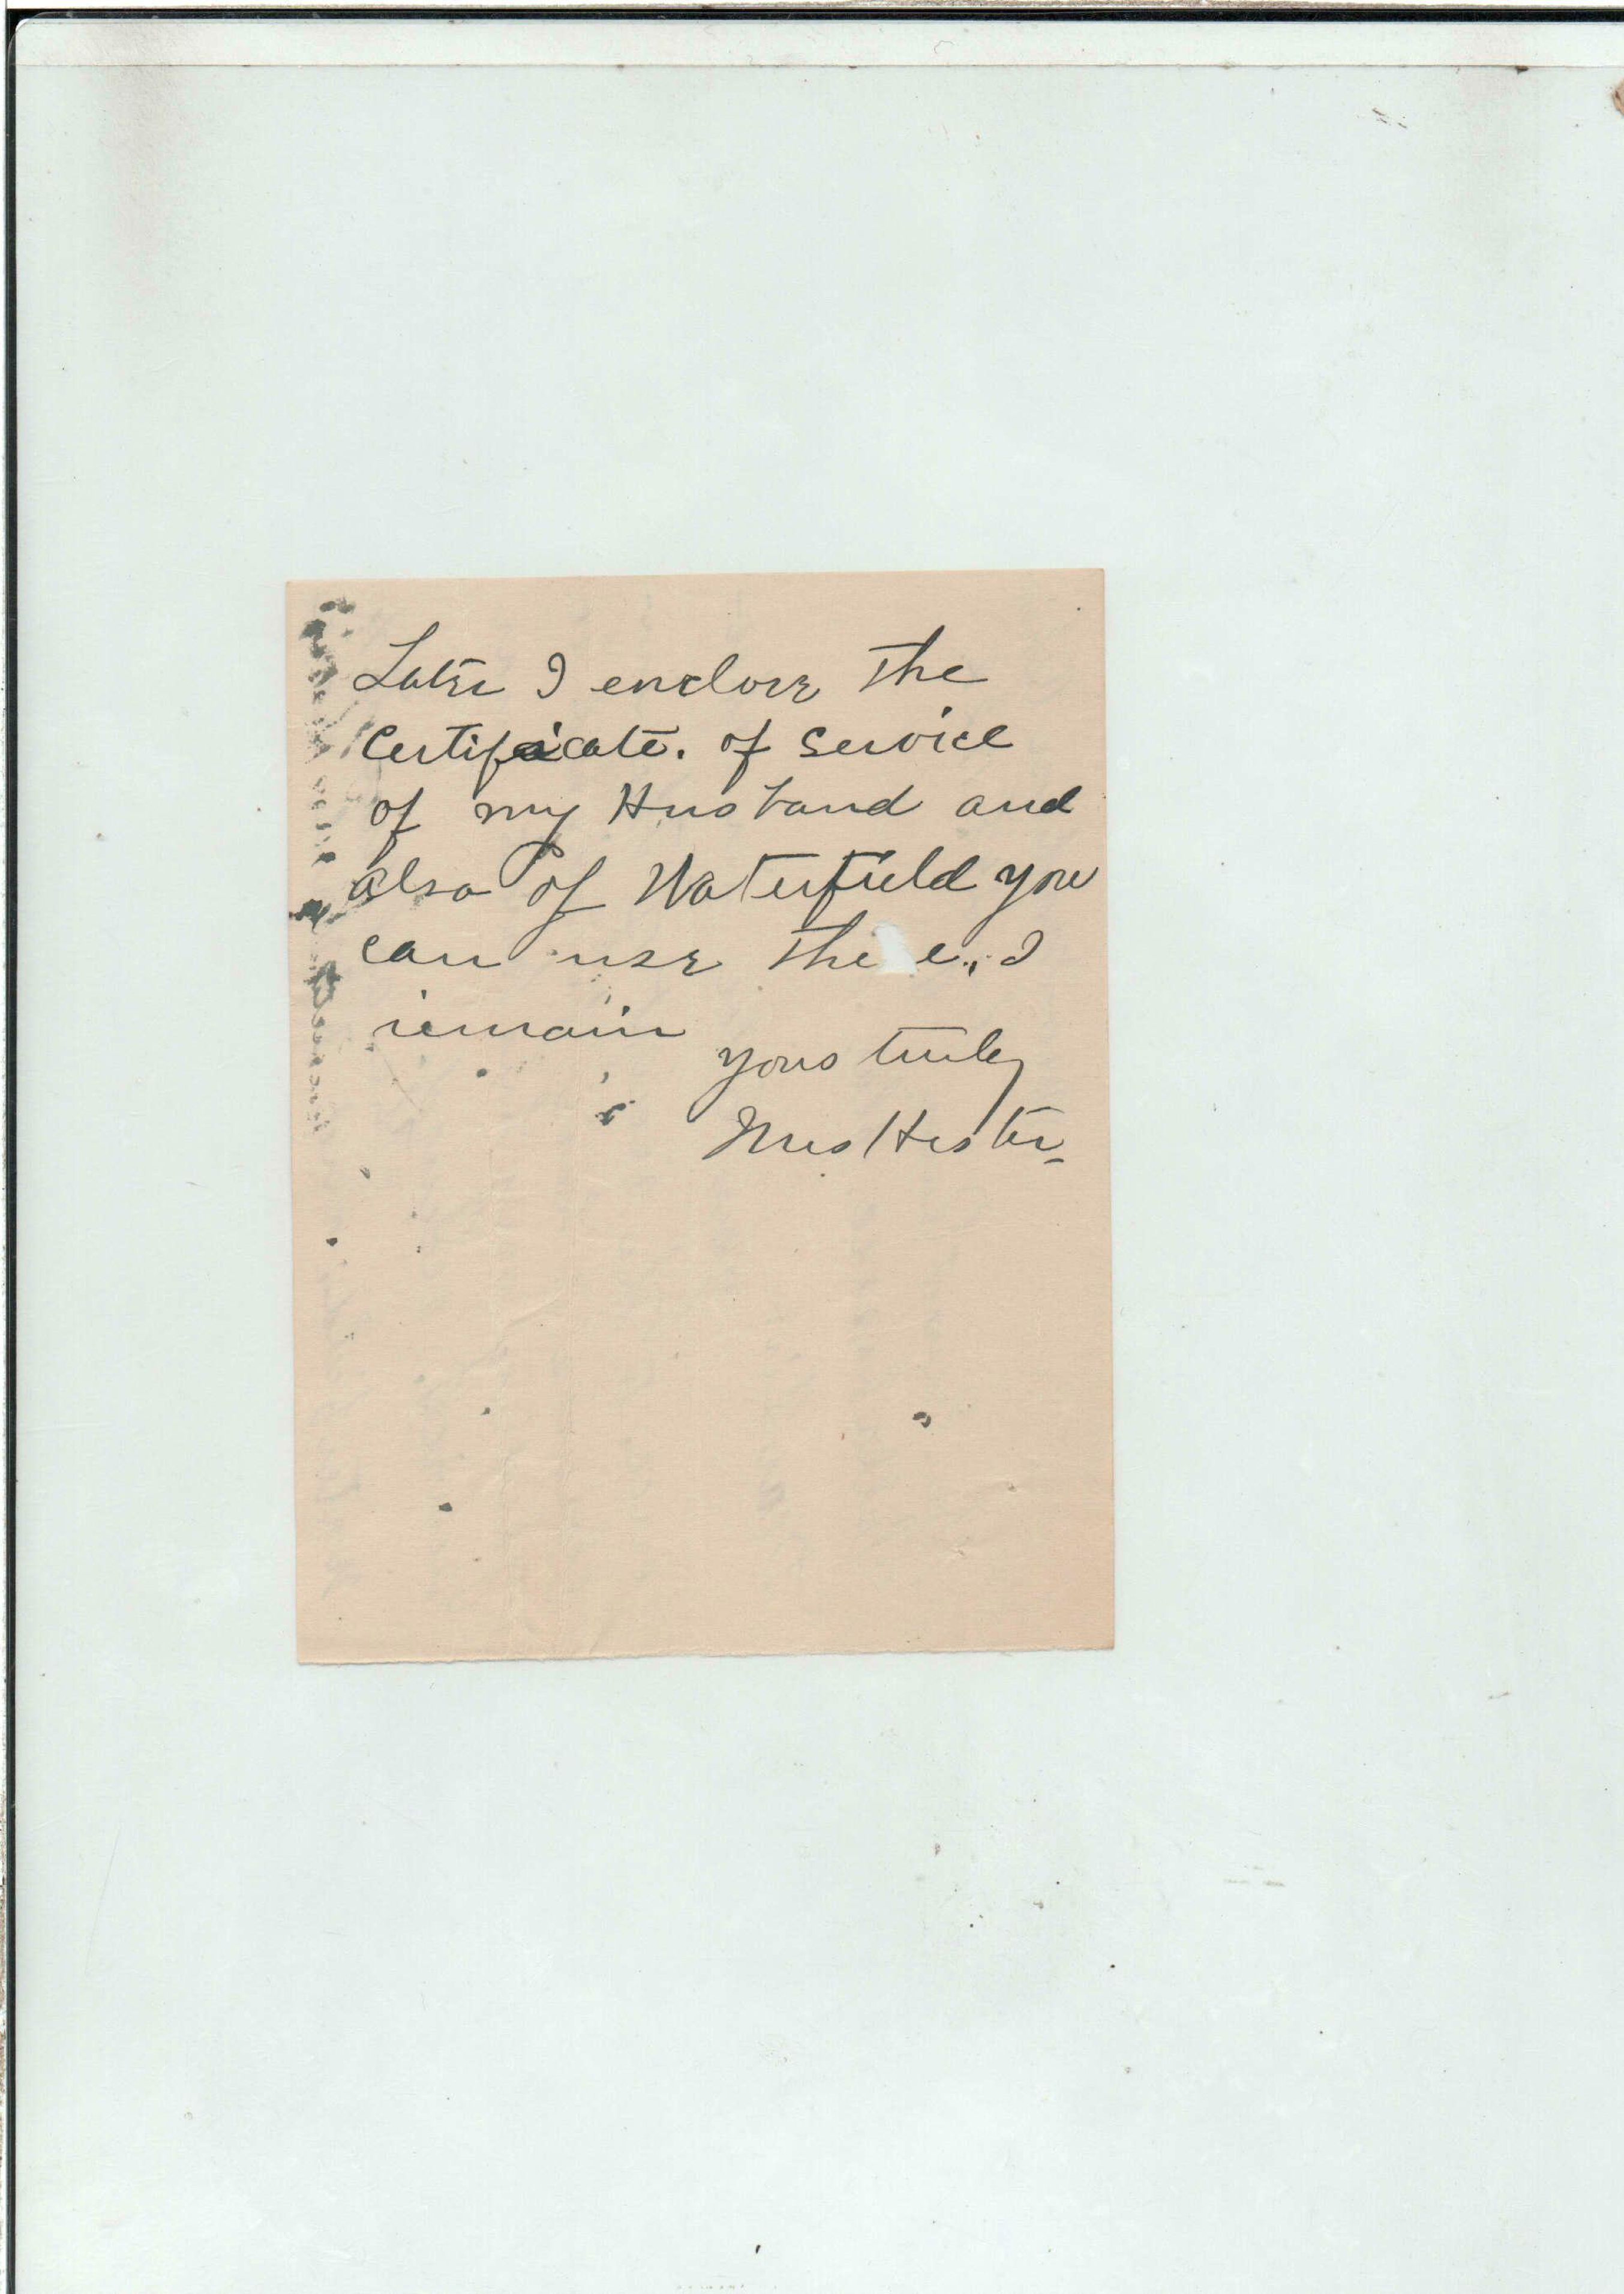 Later I enclose the
Certificate. of Service
of my Husband and
also of Waterfield you
can use I
remain
yours truly
Mrs Hester